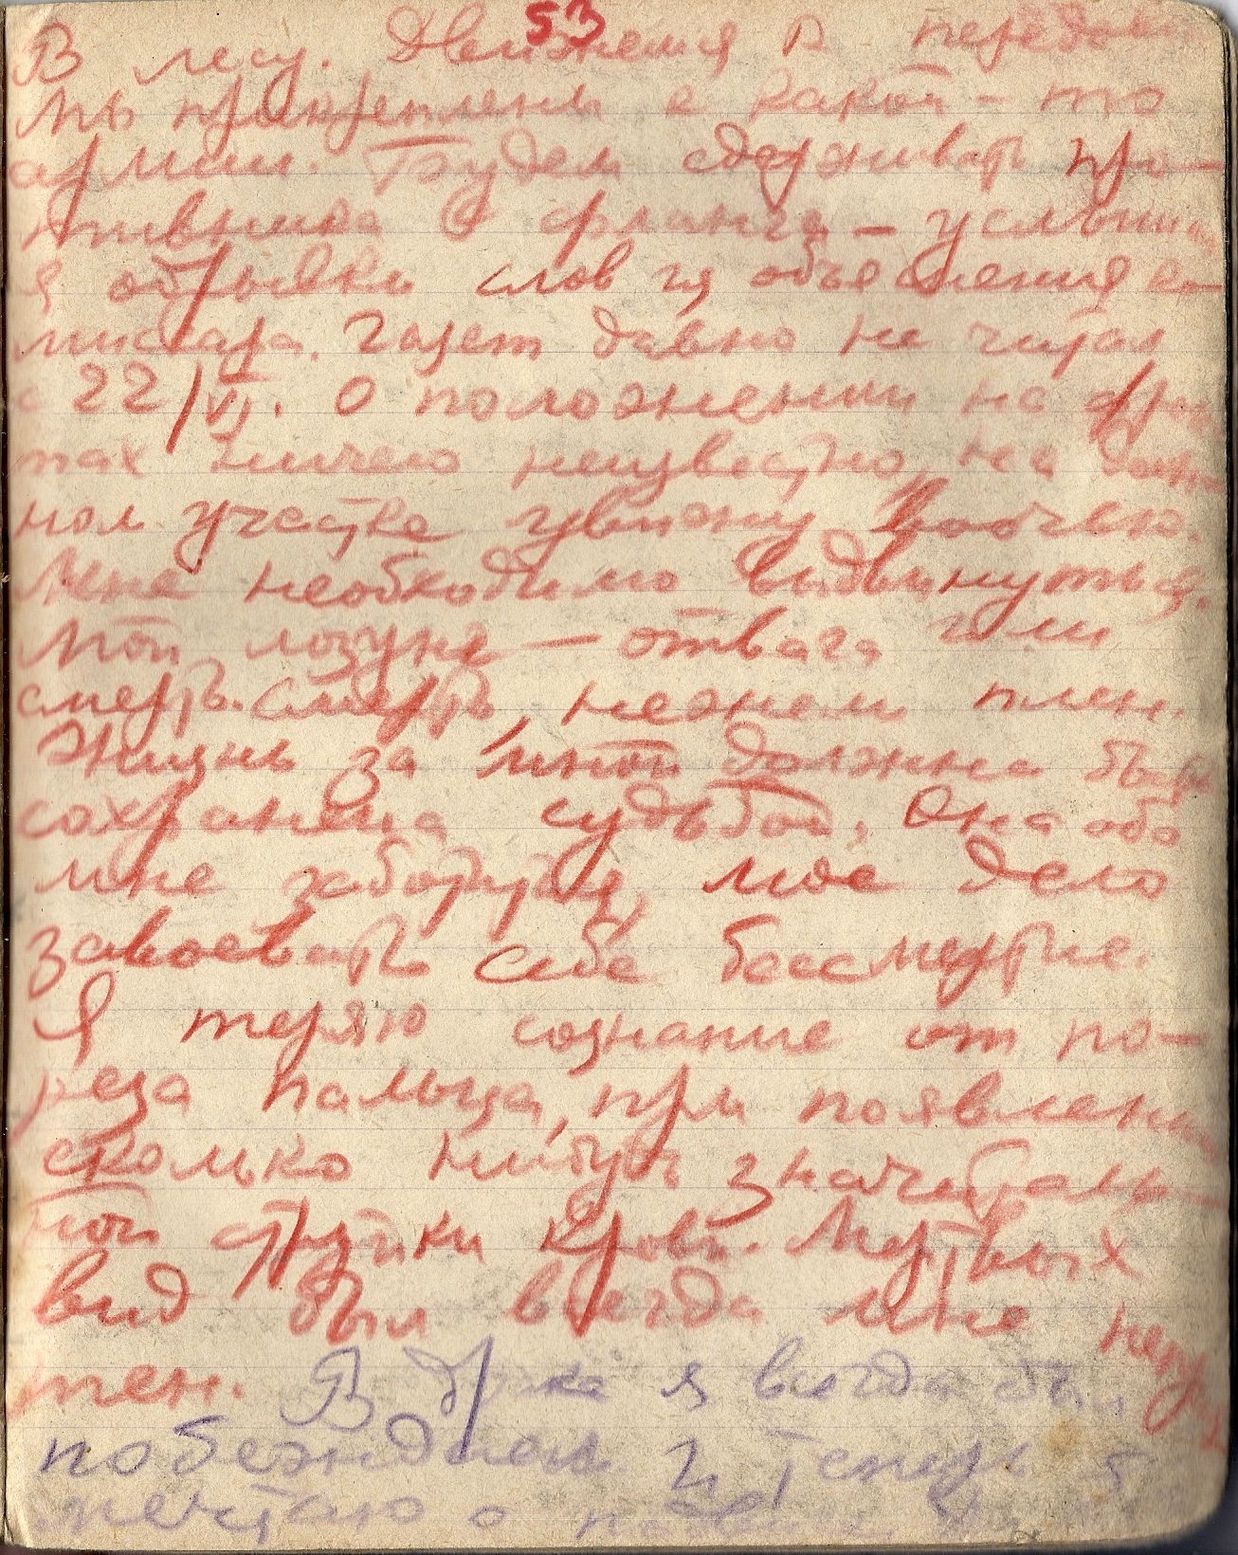 53
В лесу. Движемся к передовой
Мы прикреплены к какой-то
армии. Будем сдерживать про-
тивника с фланга – услышал
я обрывки слов из объяснения ко-
миссара. Газет давно не читал
с 22/VI. О положении на фрон-
тах ничего неизвестно, на дан-
ном участке увижу воочию.
Мне необходимо выдвинуться.
Мой лозунг – отвага или
смерть. Смерть, нежели плен.
Жизнь за мной должна быть
сохранена судьбой. Она обо
мне заботится, мое дело
завоевать себе бессмертие.
Я теряю сознание от по-
реза пальца, при появлении
сколько нибудь значитель-
ной струйки крови. Мертвых
вид был всегда мне неприя
тен. В драке я всегда был
побеждаем и теперь я
мечтаю о